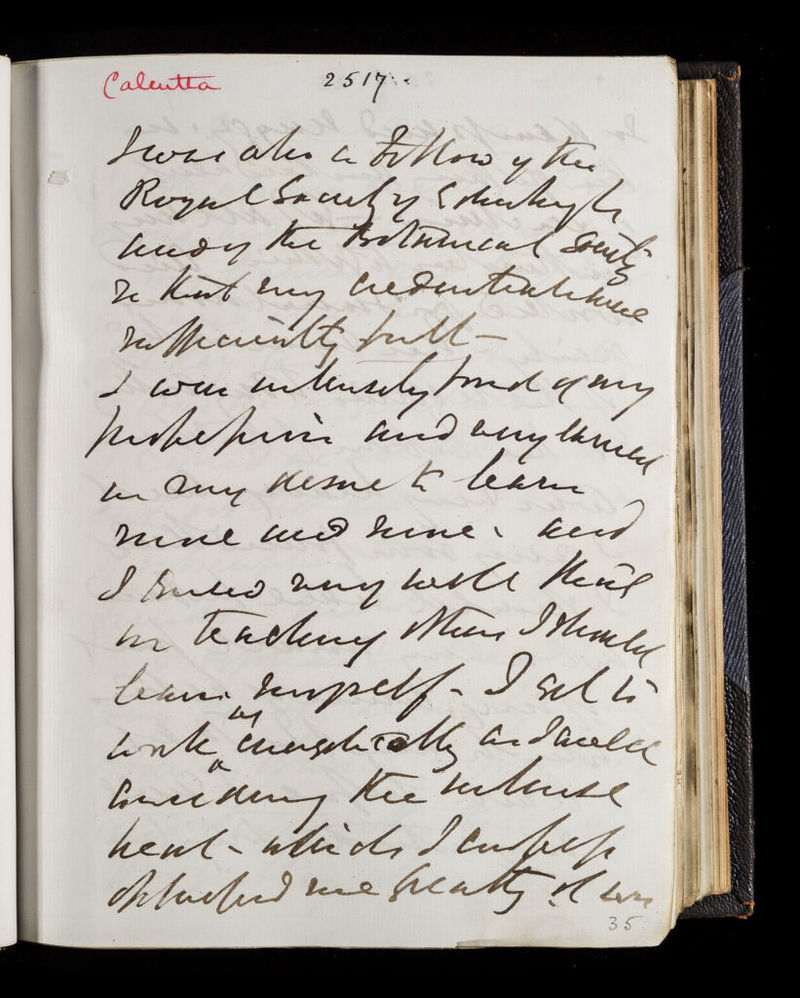 Calcutta
2517
I was also a Fellow of the
Royal Society of Edinburgh
and of the Botanical Society
so that my credentials were
sufficiently full —
I was intensely fond of my
profession and very earnest
in my desire to learn
more and more. and
I knew very well that
in teaching others I should
learn myself - I set to
as
work energetically and well
considering the intense
heat - which I confess
distressed me greatly. It was
35